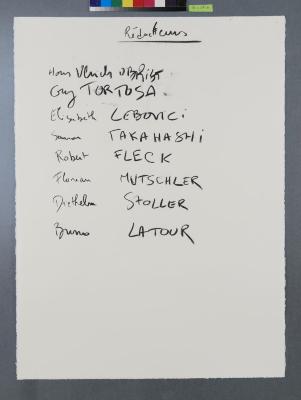 Rédacteurs
Hans Ulrich OBRIST
Guy TORTOSA.
Elisabeth LEBOVICI
TAKAHASHI
Robert FLECK
Florian MUTSCHLER
Diethelm STOLLER
Bruno LATOUR